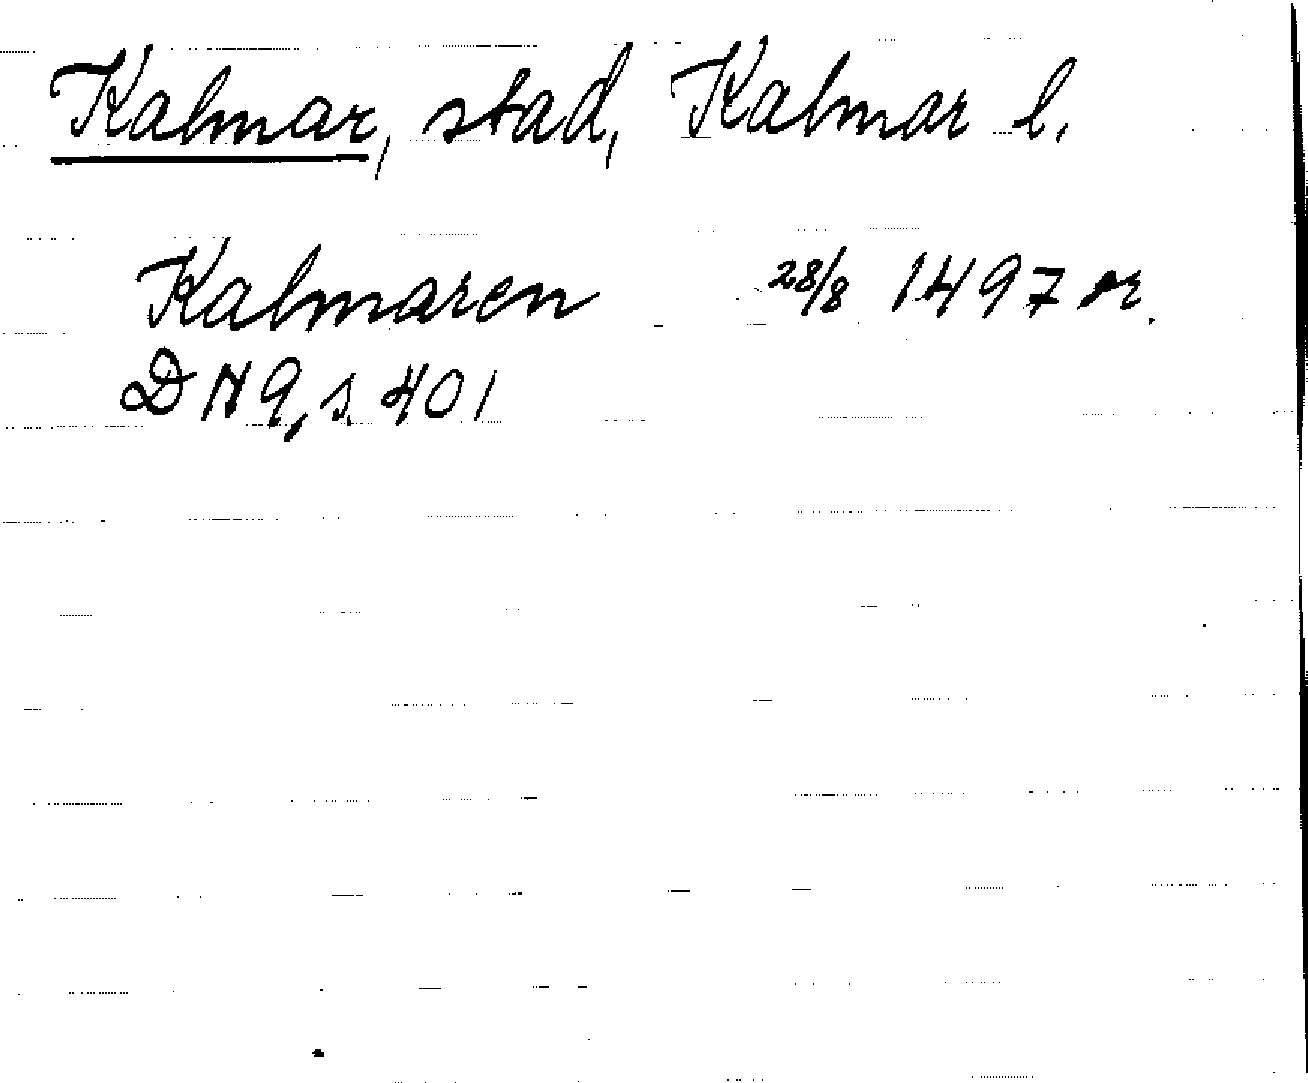 Kalmar, stad, Kalmar l.
Kalmaren 28/8 1497 or.
DN 9, s. 401